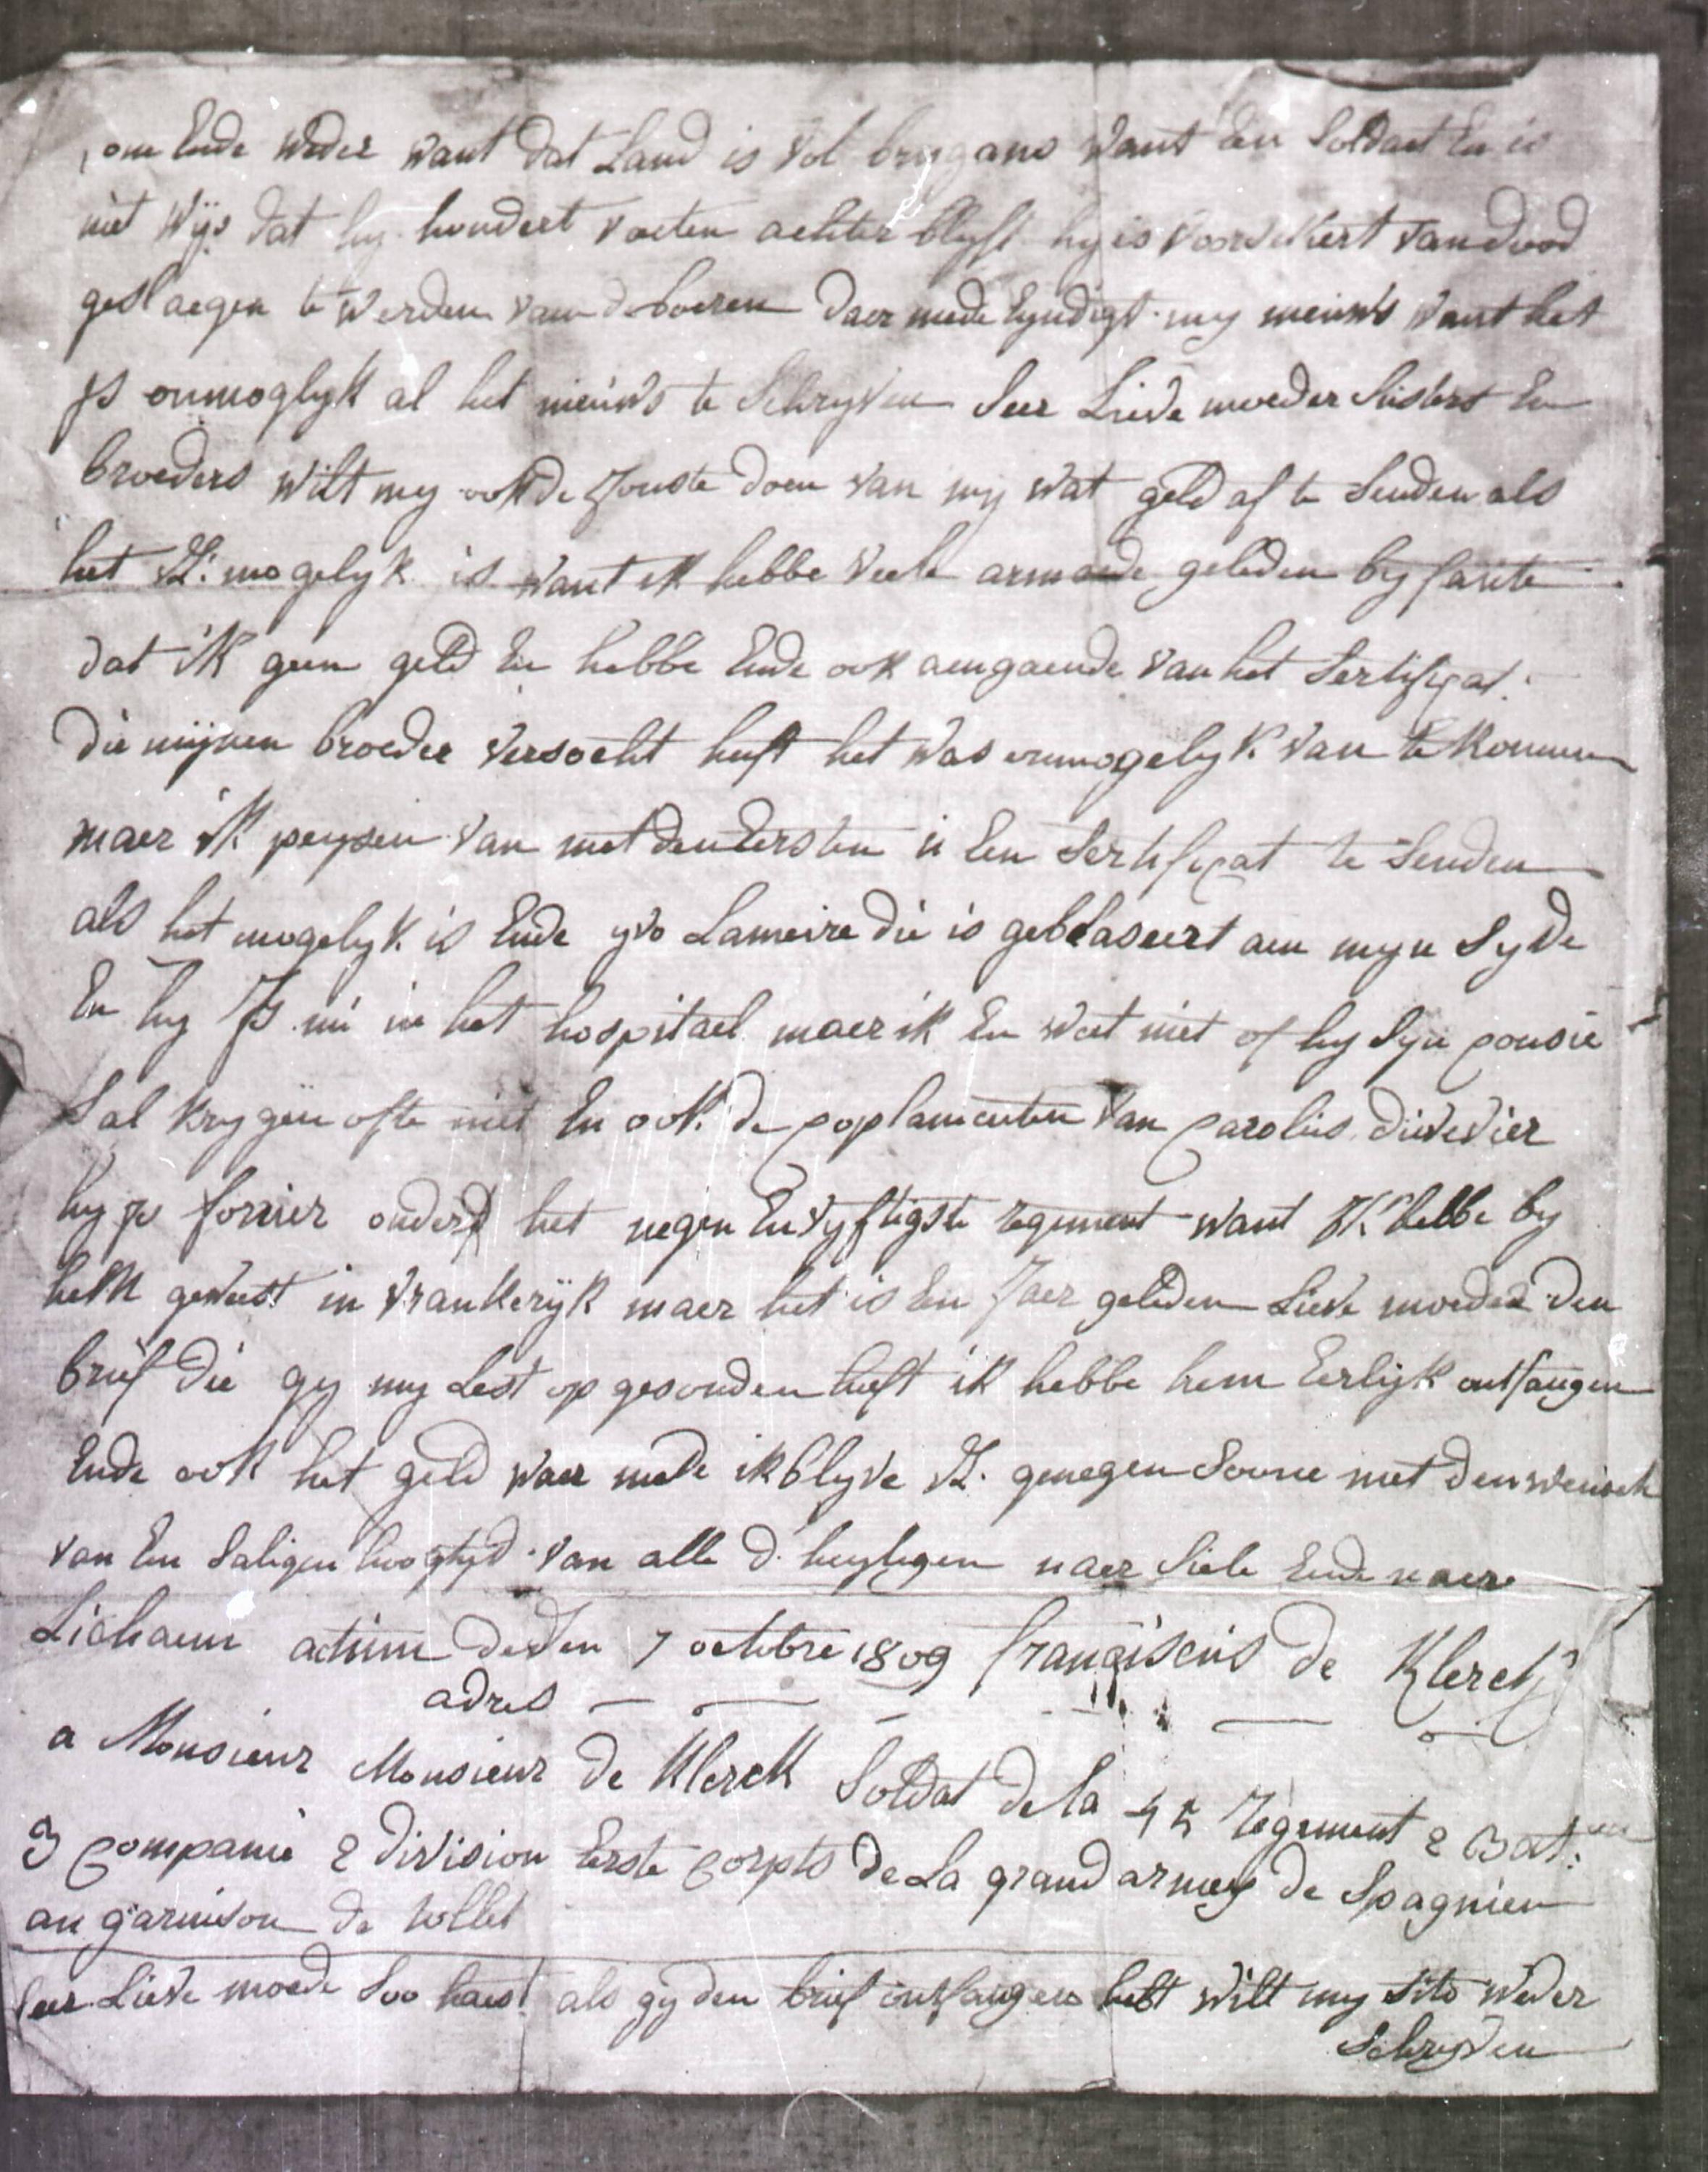 om Ende weder want dat Land is vol brygans want Een Soldaet En is
niet wijs dat hy hondert voeten achter blyft hy is versekert van dood
geslaegen te werden van de boeren daer mede Eyndigt my nieuws want het
Js onmoglyk al het nieuws te Schryven Seer Lieve moeder Susters En
broeders wilt my ook de Jonste doen van my wat geld af te Senden als
het VL: mogelyk is want ik hebbe veele armoede geleden by faute
dat ik geen geld En hebbe Ende ook aengaende van het Sertificat:
die mijnen broeder versocht heeft het was onmogelyk van te kommen
maer ik peysen van met den Eersten u Een Sertificat te Senden
als het mogelyk is Ende yvo Lameire die is geblaseert aen myn Syde
En hy Js nu in het hospitael maer ik En weet niet of hy Syn consie
Sal krygen ofte niet En ook de coplementen van carolus duvevier
hy js forier onder het negen Envyftigste regement want JK hebbe by
hem geweest in vrankerijk maer het is Een Jaer geleden Lieve moeder den
brief die gy my Lest op gesonden heeft ik hebbe hem Eerlijk ontfangen
Ende ook het geld waer mede ik blyve VL. genegen Soone met den wensch
van Een Saligen hoogtyd van alle d. heyligen naer Siele Ende naer
Lichaem actum desen 7 octobre 1809 franciscus de Klerck
adres
a Monsieur Monsieur de Klerck Soldat de la 45 regement 2 Bat:
3 companie 2 division Erste corpts de La grand armey de Spagnien
an garnison de tollet
Seer Lieve moede Soo haest als gy den brief ontfangen hebt wilt my Sito weder
Schryven